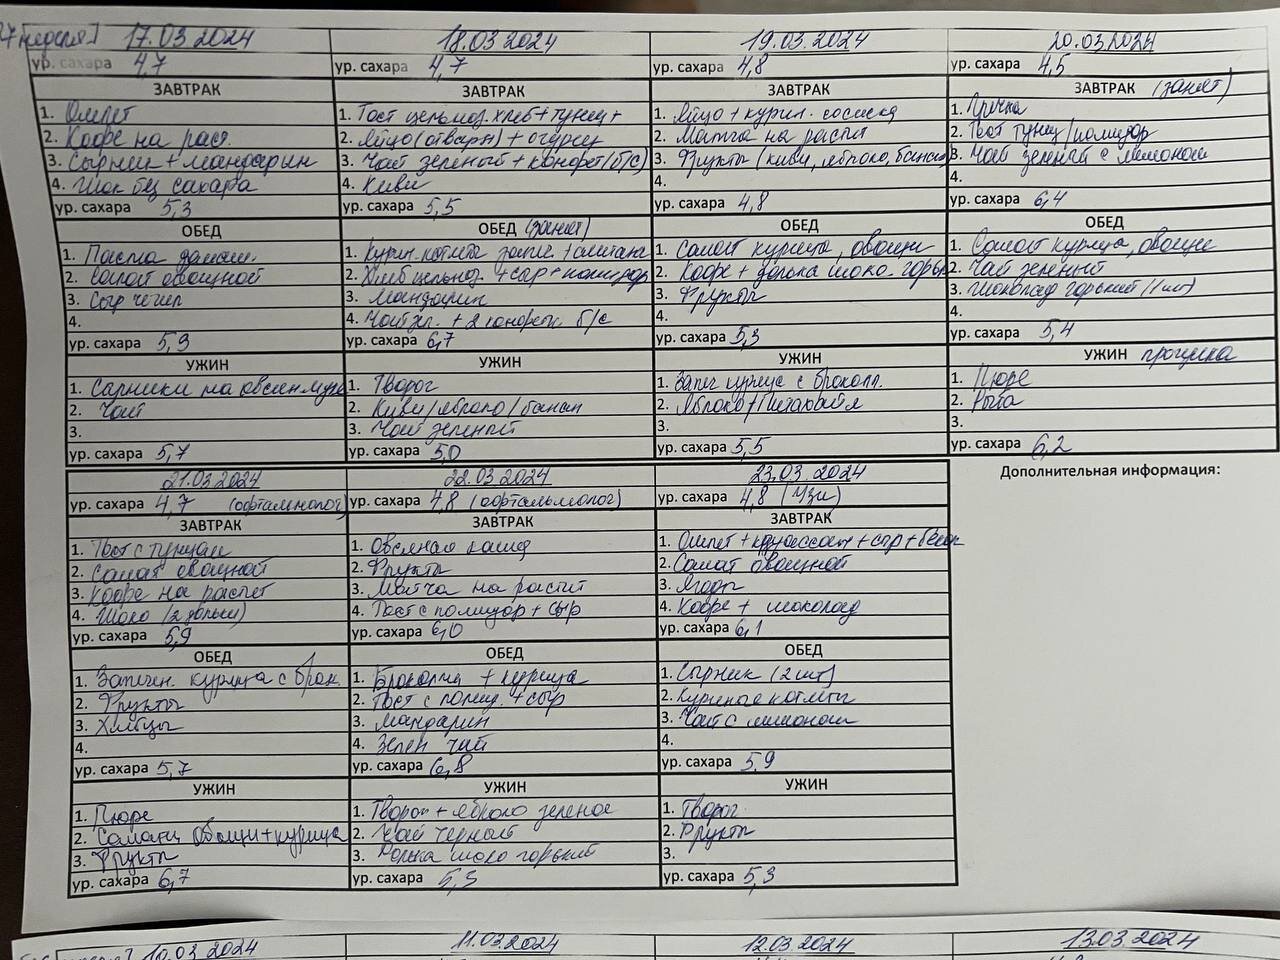 17.03.2024 18.03.2024 19.03.2024 20.03.2024
ур. сахара 4,7 ур. сахара 4,7 ур. сахара 4,8 ур. сахара 4,5
ЗАВТРАК ЗАВТРАК ЗАВТРАК ЗАВТРАК (занят)
1. Омлет 1. Тост цельноз. хлеб + тунец + 1. Яйцо + курин. сосиска 1. Гречка
2. Кофе на раст. 2. Яйцо (отварн) + огурец 2. Матча на растит 2. Тост тунец/помидор
3. Сырники + мандарин 3. Чай зеленый + конфет (б/с) 3. Фрукты (киви, яблоко, банан) 3. Чай зеленый с лимоном
4. Шок без сахара 4. Киви 4. 4.
ур. сахара 5,3 ур. сахара 5,5 ур. сахара 4,8 ур. сахара 6,4
ОБЕД ОБЕД (занят) ОБЕД ОБЕД
1. Паста домашн. 1. Курин. котлета + сметана 1. Салат курица, овощи 1. Салат курица, овощие
2. Салат овощной 2. Хлеб цельноз. + сыр + помидор 2. Кофе + долька шоко. горьк 2. Чай зеленый
3. Сыр чечил 3. Мандарин 3. Фрукты 3. Шоколад горький (1 шт)
4. 4. Чай зел. + 2 конфеты б/с 4.
ур. сахара 5,9 ур. сахара 6,7 ур. сахара 5,3 ур. сахара 5,4
УЖИН УЖИН УЖИН УЖИН прогулка
1. Сырники на овсян. муке 1. Творог 1. Запеч курица с брокол. 1. Пюре
2. Чай 2. Киви/яблоко/банан 2. Яблоко/Питахайя 2. Рыба
3. 3. Чай зеленый 3. 3.
ур. сахара 5,7 ур. сахара 5,0 ур. сахара 5,5 ур. сахара 6,2
21.03.2024 22.03.2024 23.03.2024 Дополнительная информация:
ур. сахара 4,7 (офтальмолог) ур. сахара 4,8 (офтальмолог) ур. сахара 4,8 (Узи)
ЗАВТРАК ЗАВТРАК ЗАВТРАК
1. Тост с тунцом 1. Овсяная каша 1. Омлет + круассан + сыр +
2. Салат овощной 2. Фрукты 2. Салат овощной
3. Кофе на растит 3. Матча на растит 3. Ягоды
4. Шоко (2 дольки) 4. Тост с помидор + сыр 4. Кофе + шоколад
ур. сахара 5,9 ур. сахара 6,0 ур. сахара 6,1
ОБЕД ОБЕД ОБЕД
1. Запечен. курица с брок. 1. Брокколи + курица 1. Сырник (2 шт)
2. Фрукты 2. Тост с помид. + сыр 2. Куриные котлеты
3. Хлебцы 3. Мандарин 3. Чай с лимоном
4. 4. Зелен чай 4.
ур. сахара 5,7 ур. сахара 6,8 ур. сахара 5,9
УЖИН УЖИН УЖИН
1. Пюре 1. Творог + яблоко зеленое 1. Творог
2. Салат овощи + курица 2. Чай черный 2. Фрукты
3. Фрукты 3. Долька шоко горький 3.
ур. сахара 6,7 ур. сахара 5,3 ур. сахара 5,3
10.03.2024 11.03.2024 12.03.2024 13.03.2024